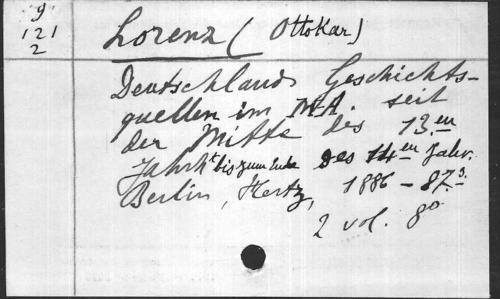 9
121
2
Lorenz ( Ottokar)
Deutschlands Geschichts-
quellen im M-A. seit
der Mitte des 13.en
Jahrh.t bis zum Ende des 14en Jahr.
Berlin, Hertz, 1886 - 87.
2 vol. 8o